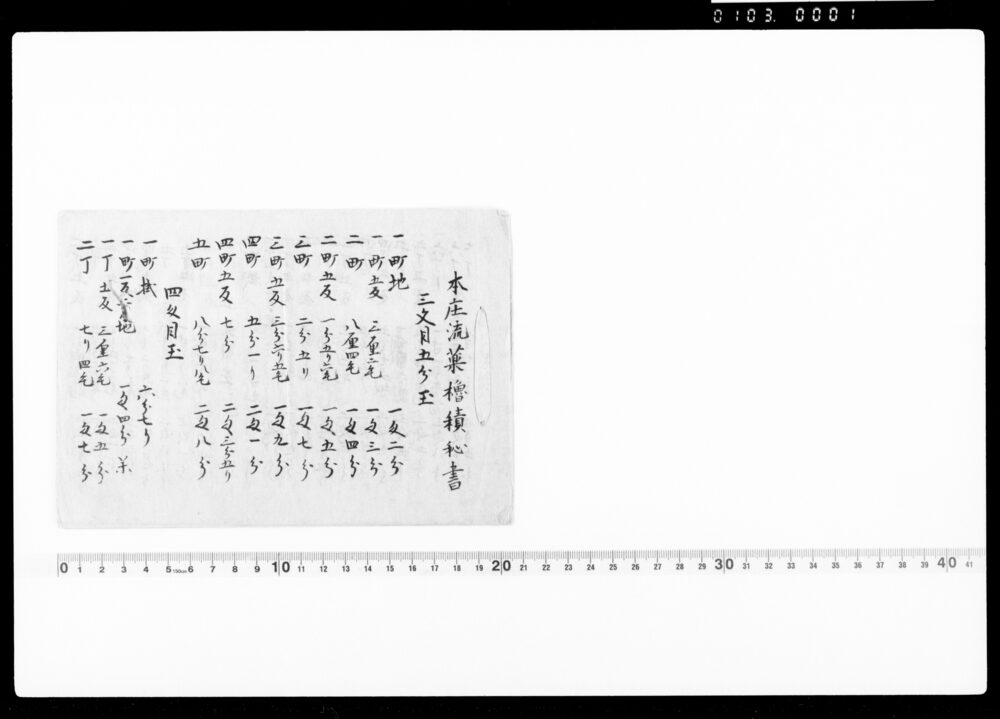 0103. 0001
本庄流薬櫓積秘書
三文目五分玉
一町地 一匁二分
一町五反 二厘二毛 一匁三分
二町 八厘四毛 一匁四分
二町五反 一分五り六毛 一匁五分
三町 二分五り 一匁七分
三町五反 三分六り五毛 一匁九分
四町 五分一り 二匁一分
四町五反 七分 二匁三分五り
五町 八分七り八毛 二匁八分
四匁目玉
一町 六分七り
一町一反 地 一匁四分
一丁五反 三厘六毛 一匁五分
二丁 七り四毛 一匁七分
0 1 2 3 4 5 150cm 6 7 8 9 10 11 12 13 14 15 16 17 18 19 20 21 22 23 24 25 26 27 28 29 30 31 32 33 34 35 36 37 38 39 40 41